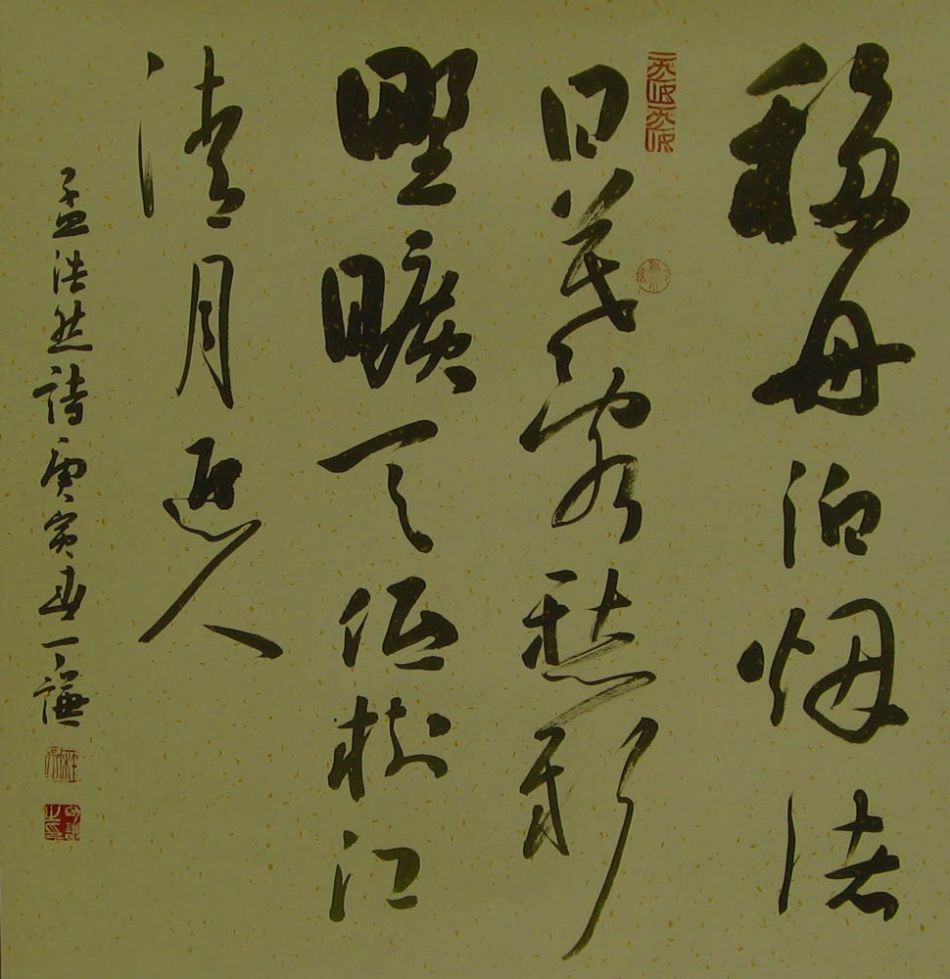 移舟泊烟渚
日暮客愁新
野曠天低樹江
清月近人
孟浩然詩庚寅春一謙